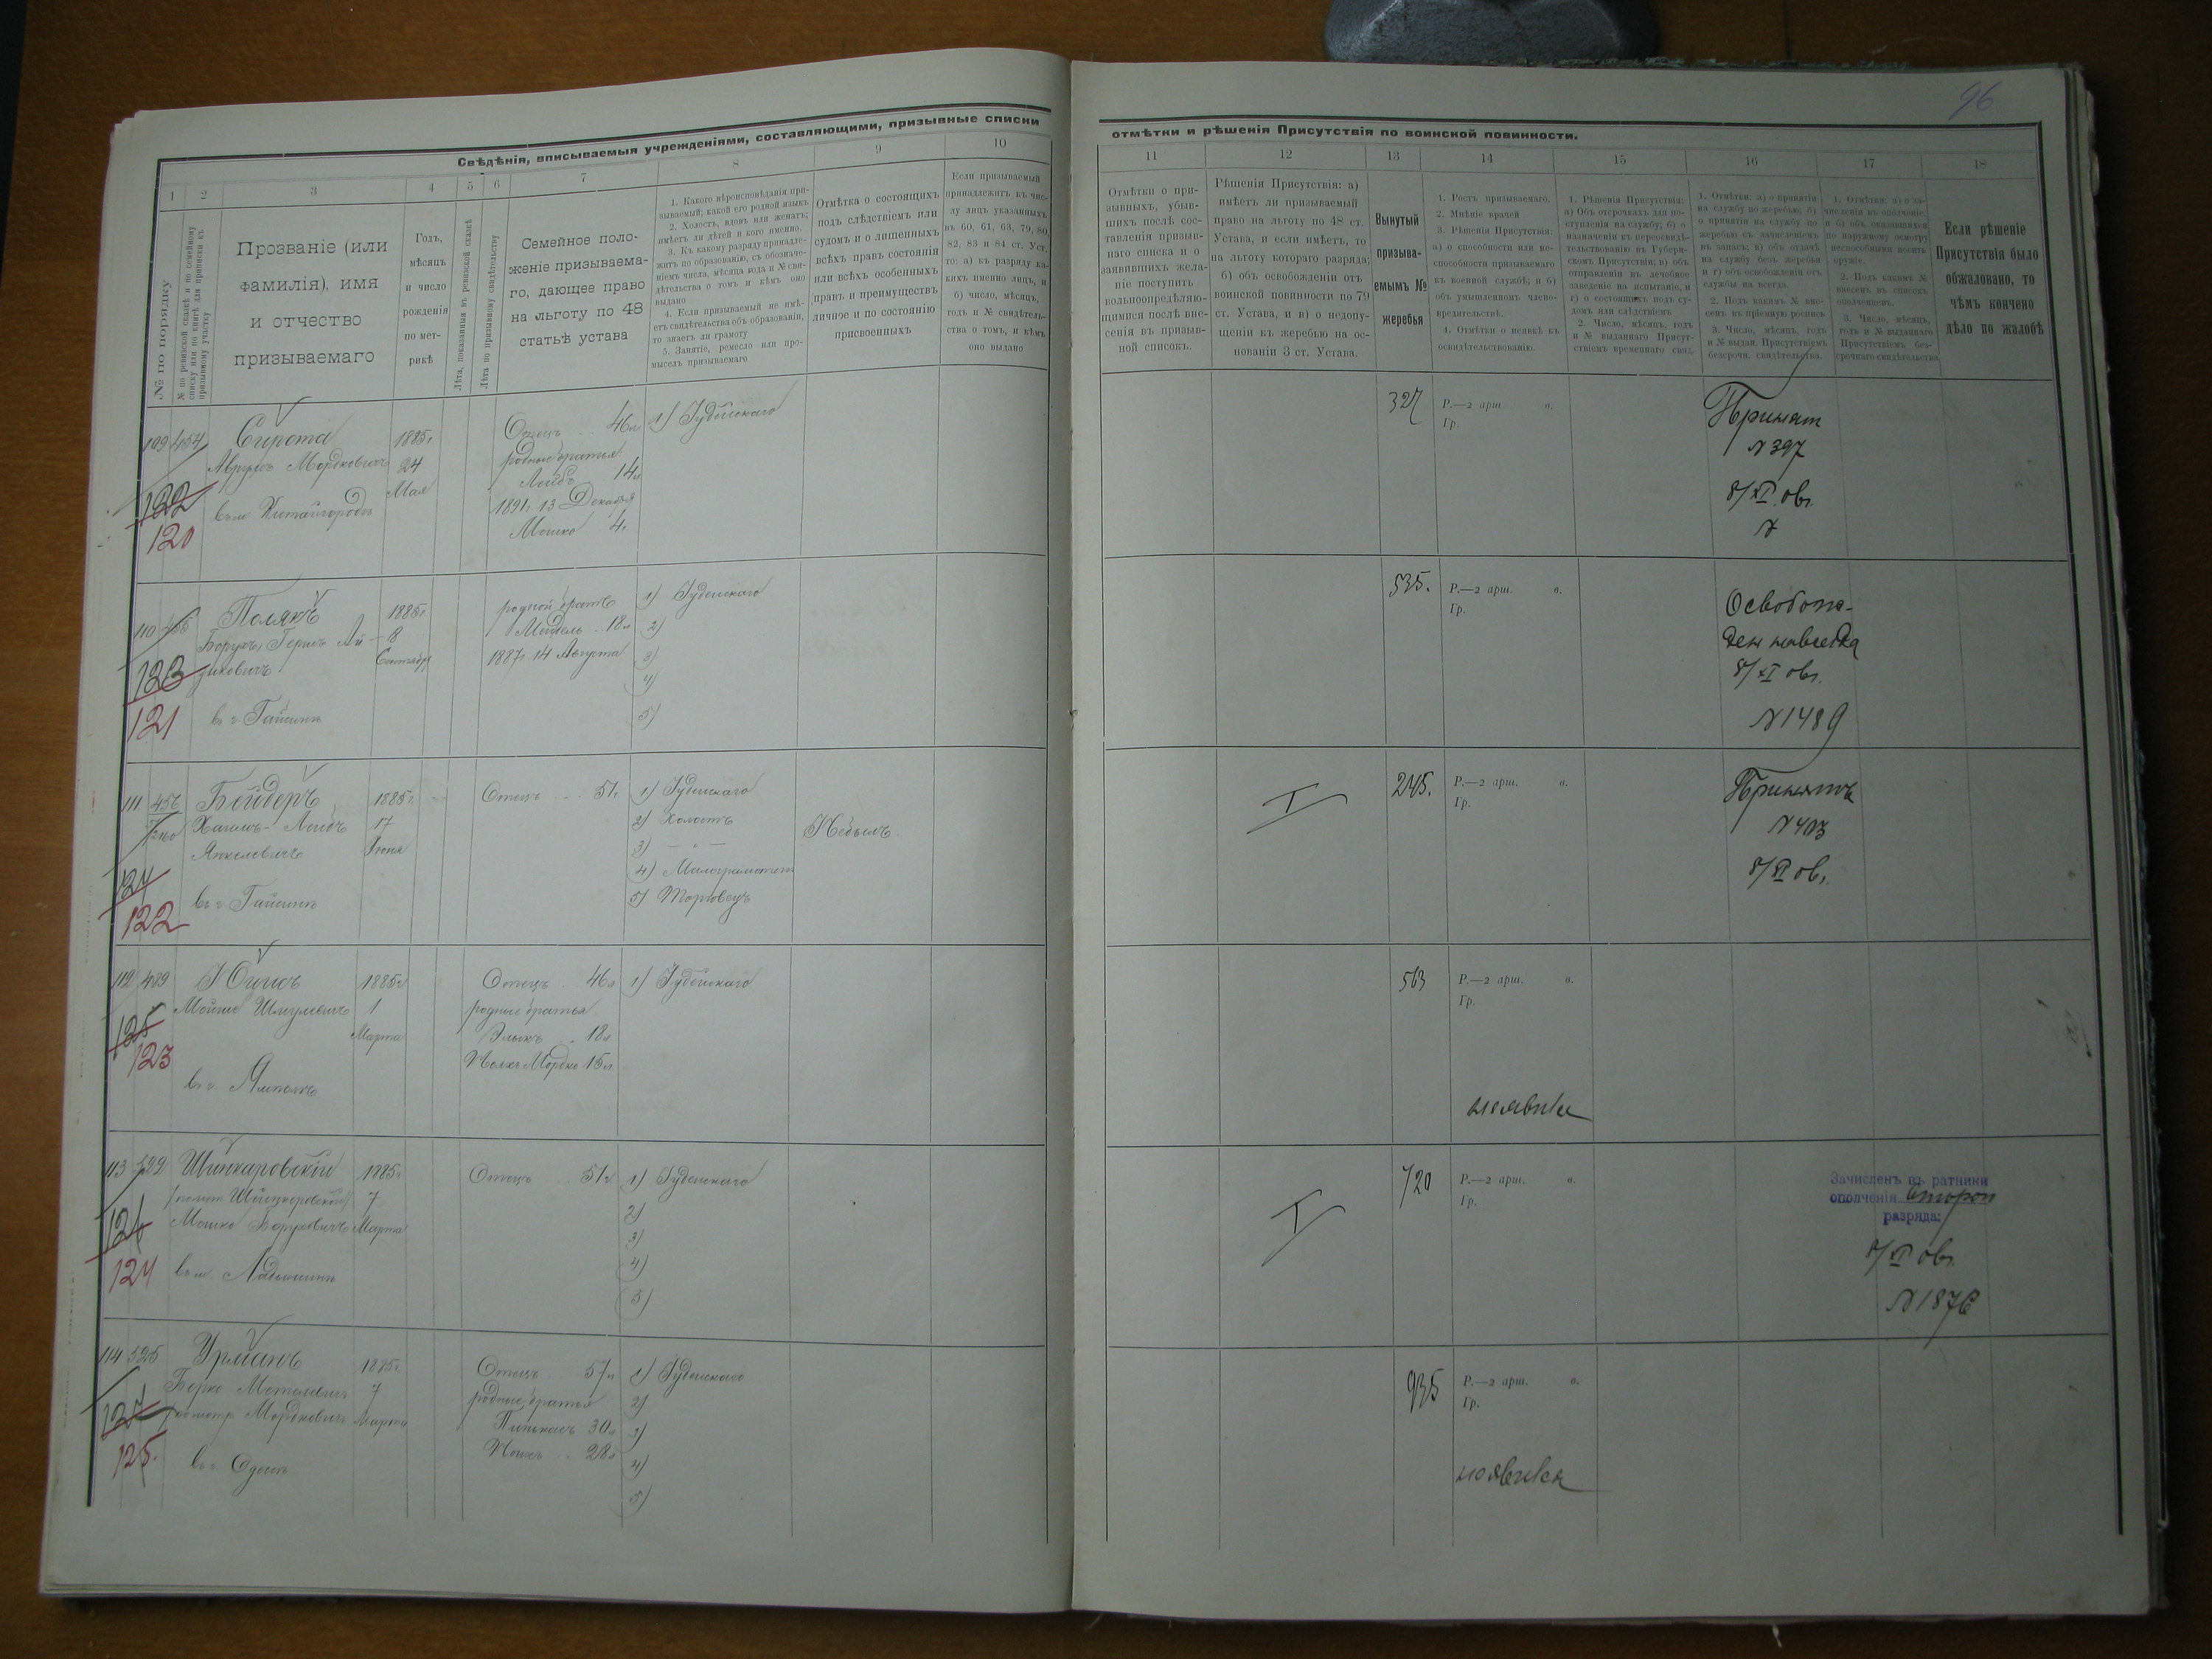 96
Свѣдѣнія, вписываемыя учрежденіями, составляющими, призывные списки
1 2 3 4 5 6 7 8 9 10
№ по порядку
№ по ревизской сказкѣ и по семейному
списку или по книгѣ для приписки къ
призывному участку
Прозваніе (или
фамилія), имя
и отчество
призываемаго
Годъ,
мѣсяцъ
и число
рожденія
по мет-
рикѣ
Лѣта, показанныя въ ревизской сказкѣ
Лѣта по призывному свидѣтельству
Семейное поло-
женіе призываема-
го, дающее право
на льготу по 48
статьѣ устава
1. Какого вѣроисповѣданія при-
зываемый; какой его родной языкъ
2. Холостъ, вдовъ или женатъ;
имѣетъ ли дѣтей и кого именно.
3. Къ какому разряду принадле-
житъ по образованію, съ обозначе-
ніемъ числа, мѣсяца года и № сви-
дѣтельства о томъ и кѣмъ оно
выдано
4. Если призываемый не имѣ-
етъ свидѣтельства объ образованіи,
то знаетъ ли грамоту
5. Занятіе, ремесло или про-
мыселъ призываемаго
Отмѣтка о состоящихъ
подъ слѣдствіемъ или
судомъ и о лишенныхъ
всѣхъ правъ состоянія
или всѣхъ особенныхъ
правъ и преимуществъ
личное и по состоянію
присвоенныхъ
Если призываемый
принадлежитъ къ чис-
лу лицъ указанныхъ
въ 60, 61, 63, 79, 80,
82, 83 и 84 ст. Уст.
то: а) къ разряду ка-
кихъ именно лицъ, и
б) число, мѣсяцъ,
годъ и № свидѣтель-
ства о томъ, и кѣмъ
оно выдано
109 454 Сирота 1885г Отецъ 46л 1) Іудейскаго
Аврумъ Мордковичъ 24 родные братья
Мая Лейбъ 14л
122 1891г 13 Декабря
въ м. Китайгородѣ Мошко 4г
120
110 Полякъ 1885г родной братъ 1) Іудейскаго
Борухъ Гершъ Ай- 8 18л 2)
зиковичъ Сентября 1887г 14 Августа 3)
123 4)
121 въ г. Гайсинѣ 5)
111 456 Бейдеръ 1885г Отецъ 51г 1) Іудейскаго
Лейбъ 17 2) Холостъ Небылъ
Янкелевичъ Іюня 3) — „ —
4) Малограмотенъ
124 въ г. Гайсинѣ 5) Торговецъ
122
112 489 1885г Отецъ 46л 1) Іудейскаго
Шмулевичъ 1 родные братья
125 Марта 18л
123 Мордко 15л
въ г. Ямполѣ
113 522 Шинкаровскій 1885г Отецъ 51г 1) Іудейскаго
7 2)
Мошко Боруховичъ Марта 3)
126 4)
124 въ м. Ладыжинѣ 5)
114 525 Урманъ 1885г Отецъ 57л 1) Іудейскаго
Берко 7 родные братья 2)
127 Мордковичъ Марта Пинькасъ 30л 3)
28л 4)
125. въ г. Одессѣ 5)
отмѣтки и рѣшенія Присутствія по воинской повинности.
11 12 13 14 15 16 17 18
Отмѣтки о при-
зывныхъ, убыв-
шихъ послѣ сос-
тавленія призыв-
наго списка и о
заявившихъ жела-
ніе поступить
вольноопредѣляю-
щимися послѣ вне-
сенія въ призыв-
ной списокъ.
Рѣшенія Присутствія: а)
имѣетъ ли призываемый
право на льготу по 48 ст.
Устава, и если имѣетъ, то
на льготу котораго разряда;
б) объ освобожденіи отъ
воинской повинности по 79
ст. Устава, и в) о недопу-
щеніи къ жеребью на ос-
нованіи 3 ст. Устава.
Вынутый
призыва-
емымъ №
жеребья
1. Ростъ призываемаго.
2. Мнѣніе врачей
3. Рѣшенія Присутствія:
а) о способности или не-
способности призываемаго
къ военной службѣ; и б)
объ умышленномъ члено-
вредительствѣ.
4. Отмѣтки о неявкѣ къ
освидѣтельствованію.
1. Рѣшенія Присутствія:
а) Объ отсрочкахъ для по-
ступленія на службу; б) о
назначеніи къ переосвидѣ-
тельствованію въ Губерн-
скомъ Присутствіи; в) объ
отправленіи въ лечебное
заведеніе на испытаніе, и
г) о состоящихъ подъ су-
домъ или слѣдствіемъ
2. Число, мѣсяцъ, годъ
и № выданнаго Присут-
ствіемъ временнаго свид.
1. Отмѣтки: а) о принятіи
на службу по жеребью; б)
о принятіи на службу по
жеребью съ зачисленіемъ
въ запасъ; в) объ отдачѣ
на службу безъ жеребья
и г) объ освобожденіи отъ
службы на всегда.
2. Подъ какимъ № вне-
сенъ въ пріемную роспись
3. Число, мѣсяцъ, годъ
и № выдан. Присутствіемъ
безсрочн. свидѣтельства.
1. Отмѣтки: а) о за-
численіи въ ополченіе,
и б) объ оказавшихся
по наружному осмотру
неспособными носить
оружіе.
2. Подъ какимъ №
внесенъ въ списокъ
ополченцевъ.
3. Число, мѣсяцъ,
годъ и № выданнаго
Присутствіемъ без-
срочнаго свидѣтельства
Если рѣшеніе
Присутствія было
обжаловано, то
чѣмъ кончено
дѣло по жалобѣ
327 Р.—2 арш. в. Принят
Гр. N 397
8/XI 06г.
535. Р.—2 арш. в. Освобож-
Гр. ден навсегда
8/XI 06г.
N 1489
I 245. Р.—2 арш. в. Принятъ
Гр. N 403
8/XI 06г.
563 Р.—2 арш. в.
Гр.
неявился
I 720 Р.—2 арш. в. Зачисленъ въ ратники
Гр. ополченія второго
разряда:
8/XI 06г.
N 1876
935 Р.—2 арш. в.
Гр.
неявился